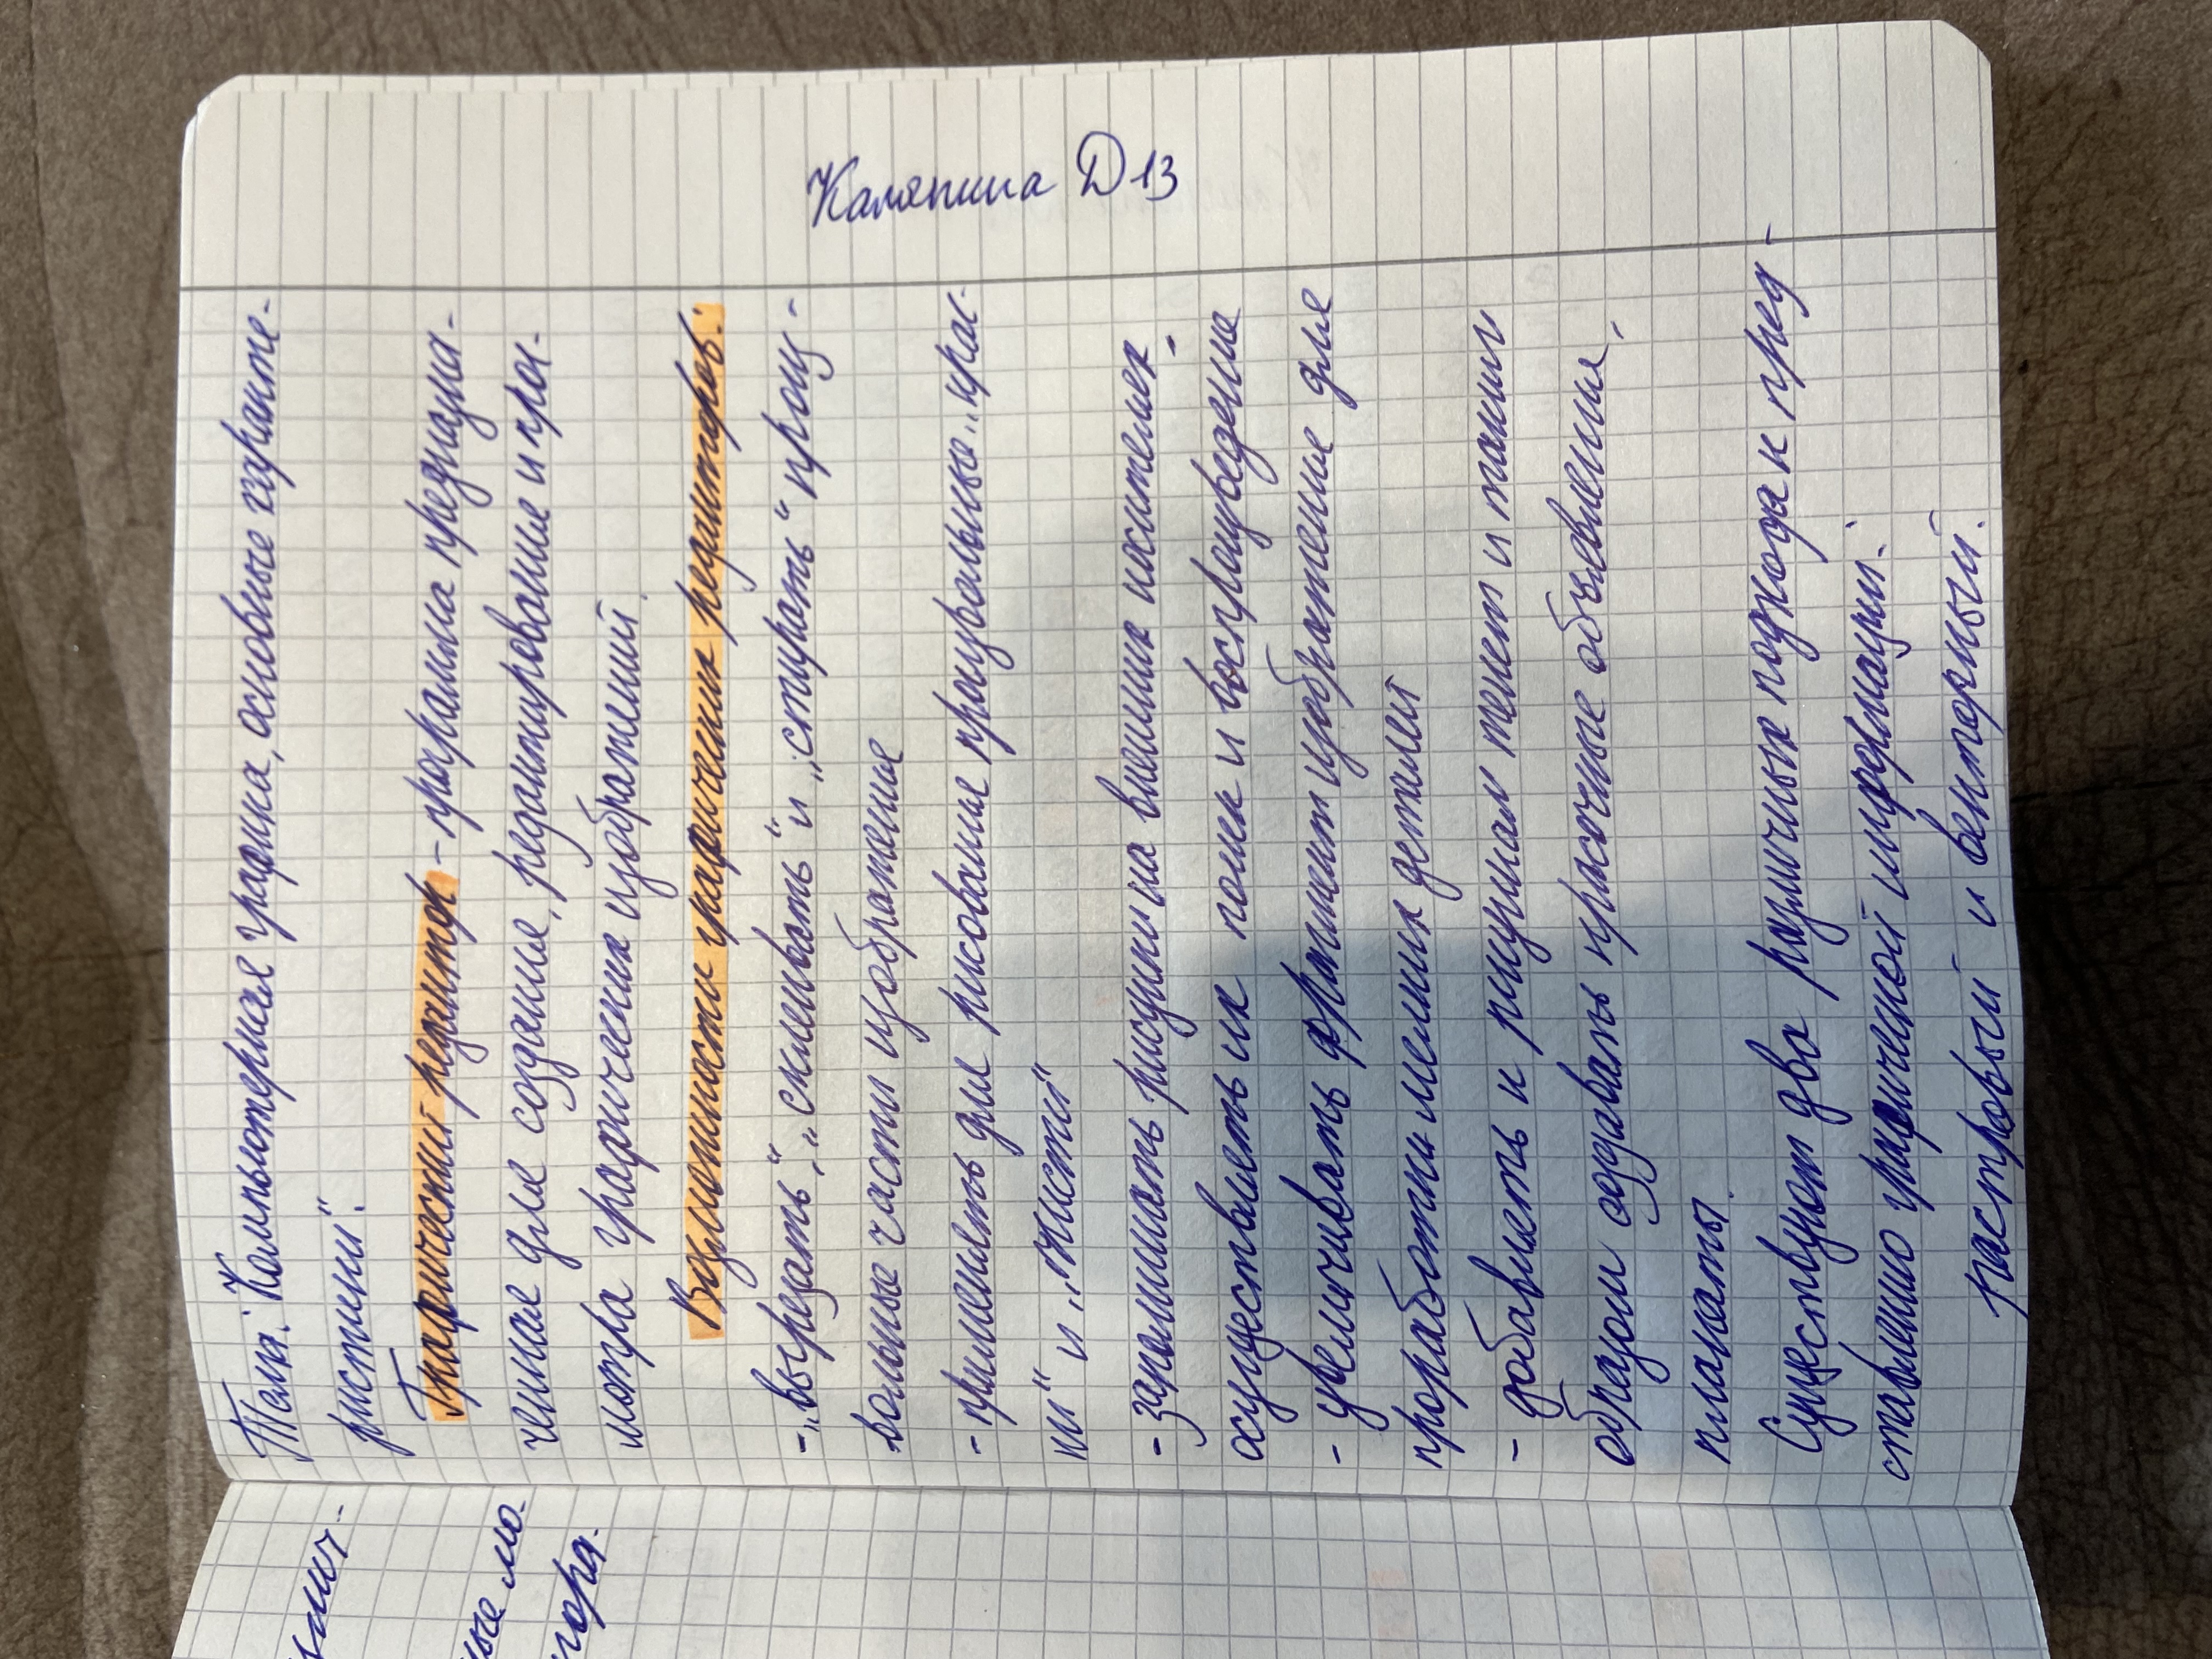 Каляпина Д 13
Тема: "Компьютерная графика, основные характе-
ристики".
Графический редактор - программа предназна-
ченная для создания, редактирования и прос-
мотра графических изображений.
Возможности графических редакторов:
- „вырезать", „склеивать" и „стирать" произ-
вольные части изображения
- применять для рисования произвольные „крас-
ки" и „кисти"
- запоминать рисунки на внешних носителях,
осуществлять их поиск и воспроизведение
- увеличивать фрагмент изображения для
проработки мелких деталей
- добавлять к рисункам текст и таким
образом создавать красочные объявления,
плакаты.
Существуют два различных подхода к пред-
ставлению графической информации:
растровый и векторный.
ные мо-